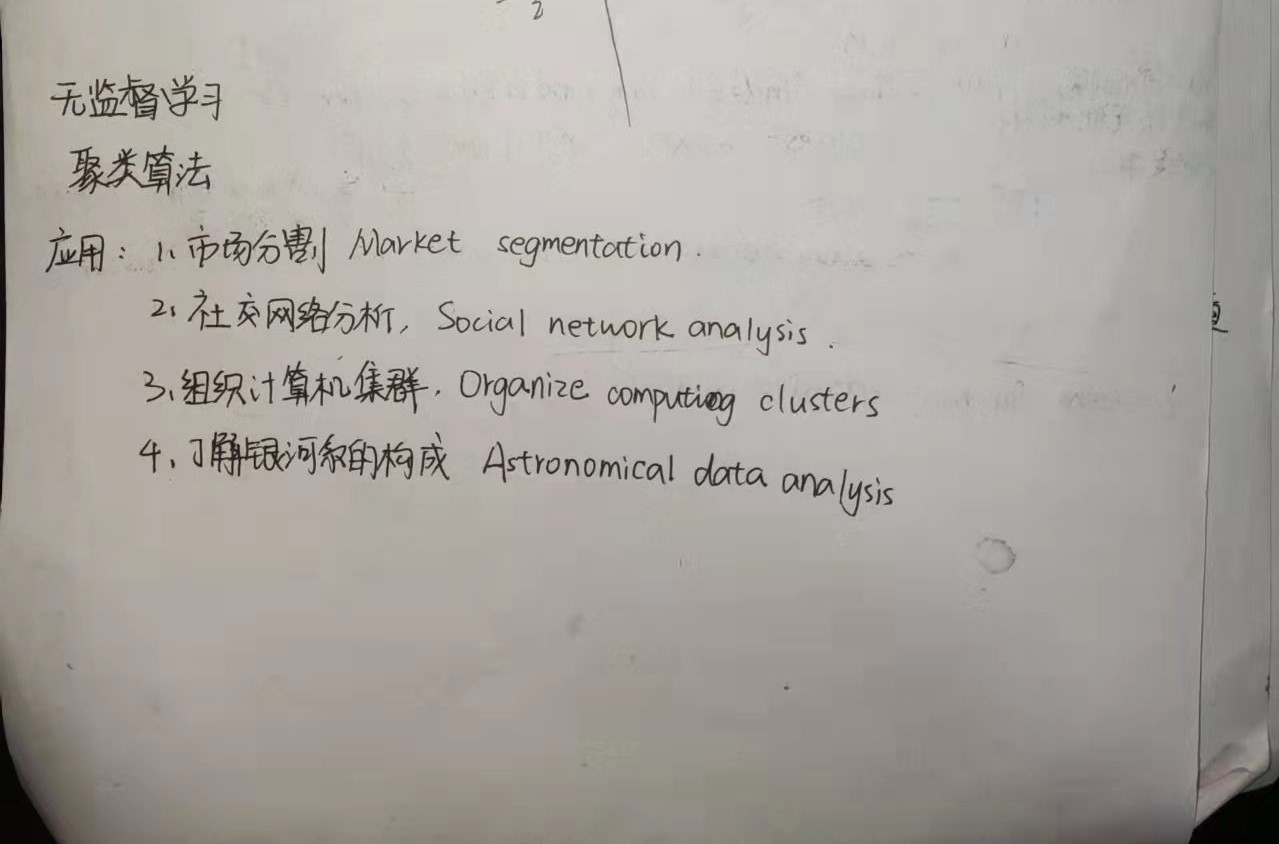 2
无监督学习
聚类算法
应用：1、市场分割 Market segmentation.
2、社交网络分析, Social network analysis.
3、组织计算机集群. Organize computing clusters
4、了解银河系的构成 Astronomical data analysis